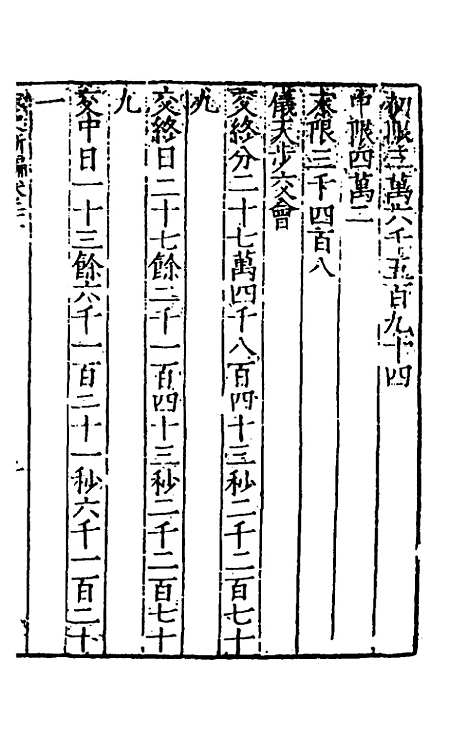 初限三萬六千五百九十四
中限四萬二
末限三千四百八
儀天步交會
交終分二十七萬四千八百四十三秒二千二百七十
九
交終日二十七餘二千一百四十三秒二千二百七十
九
交中日一十三餘六千一百二十一秒六千一百二十
一